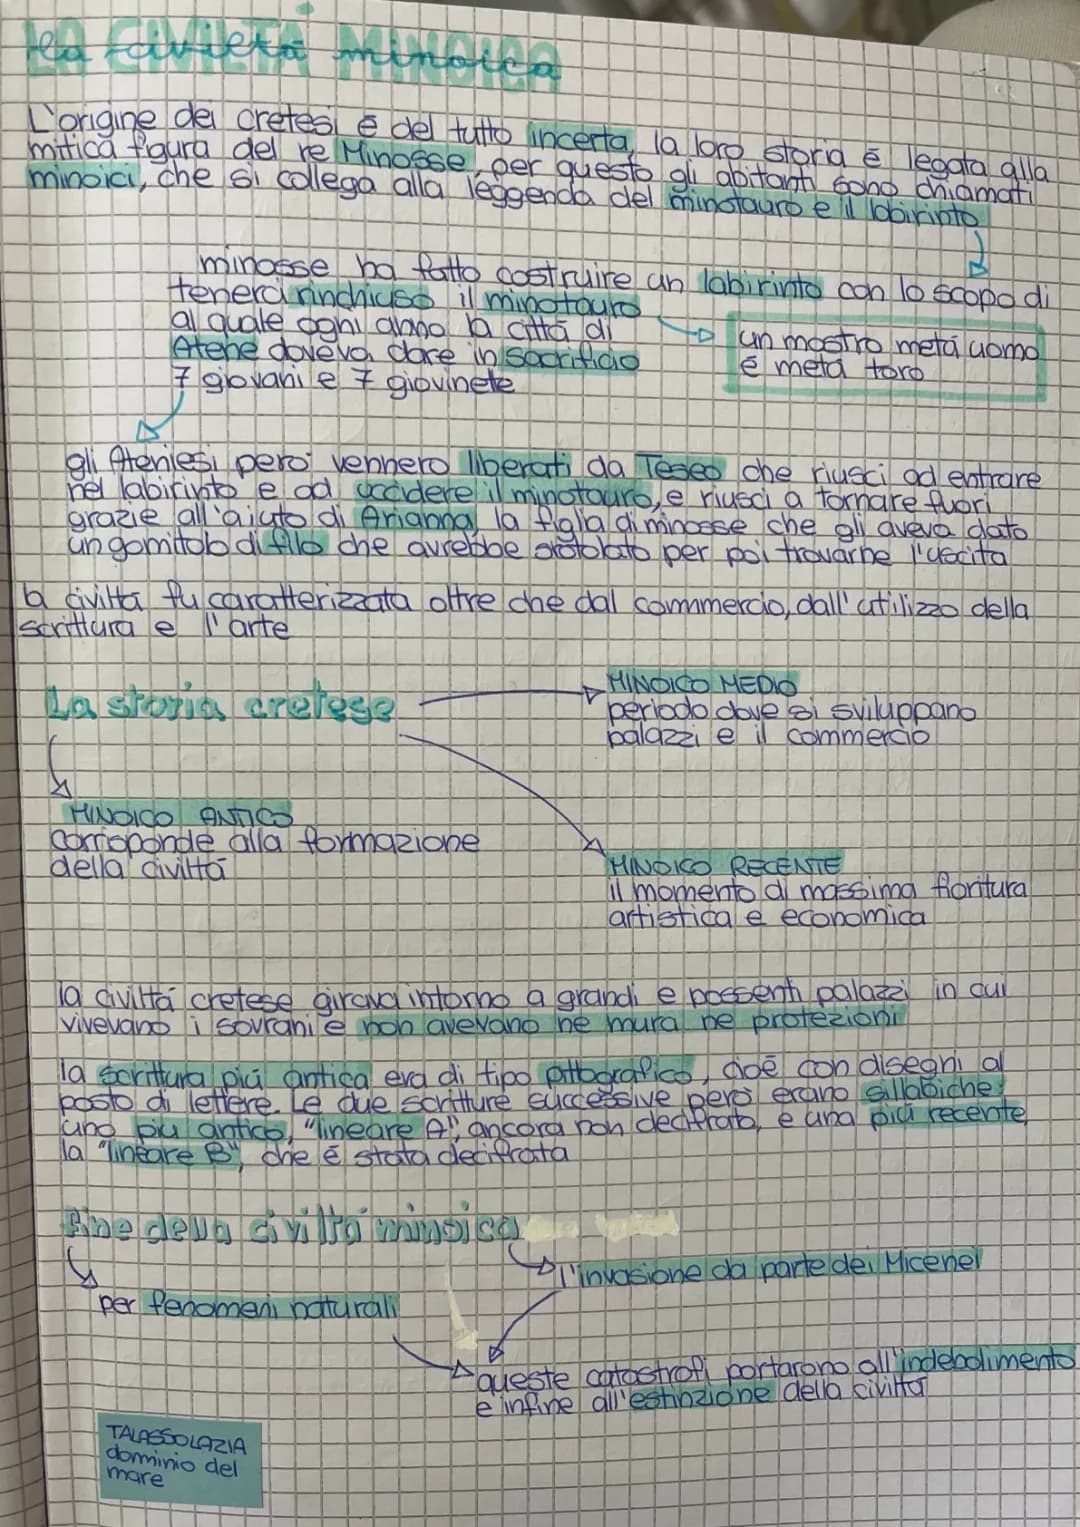 La civiltà minoica
L'origine dei cretesi è del tutto incerta, la loro storia è legata alla
mitica figura del re Minosse, per questo gli abitanti sono chiamati
minoici, che si collega alla leggenda del minotauro e il labirinto
minosse ha fatto costruire un labirinto con lo scopo di
tenerci rinchiuso il minotauro
al quale ogni anno la città di
Atene doveva dare in sacrificio
7 giovani e 7 giovinete
un mostro metà uomo
e metà toro
gli Ateniesi però vennero liberati da Teseo che riuscì ad entrare
nel labirinto e ad uccidere il minotauro, e riuscì a tornare fuori
grazie all'aiuto di Arianna, la figlia di minosse che gli aveva dato
un gomitolo di filo che avrebbe srotolato per poi trovarne l'uscita
la civiltà fu caratterizzata oltre che dal commercio, dall'utilizzo della
scrittura e l'arte
La storia cretese
MINOICO MEDIO
periodo dove si sviluppano
palazzi e il commercio
MINOICO ANTICO
corrisponde alla formazione
della civiltà
MINOICO RECENTE
il momento di massima fioritura
artistica e economica
la civiltà cretese girava intorno a grandi e possenti palazzi in cui
vivevano i sovrani e non avevano ne mura ne protezioni
la scrittura più antica era di tipo pittografico, cioè con disegni al
posto di lettere. Le due scritture successive però erano sillabiche:
una più antica, "lineare A", ancora non decifrata, e una più recente,
la "lineare B", che è stata decifrata
Fine della civiltà minoica
l'invasione da parte dei Micenei
per fenomeni naturali
queste catastrofi portarono all'indebolimento
e infine all'estinzione della civiltà
TALASSOLAZIA
dominio del
mare